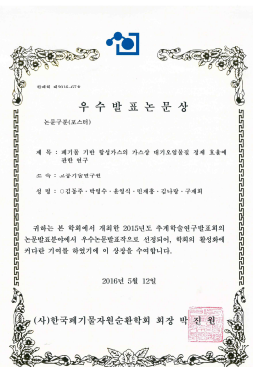 우 수 발 표 논 문 상
논문구분(포스터)
제 목 : 폐기물 기반 합성가스의 가스상 대기오염물질 정제 효율에
관한 연구
소 속 : 고등기술연구원
성 명 : ○김동주 · 박영수 · 윤영식 · 민재홍 · 김나랑 · 구재회
귀하는 본 학회에서 개최한 2015년도 추계학술연구발표회의
논문발표분야에서 우수논문발표작으로 선정되어, 학회의 활성화에
커다란 기여를 하였기에 이 상장을 수여합니다.
2016년 5월 12일
(사)한국폐기물자원순환학회 회장 박 진 원